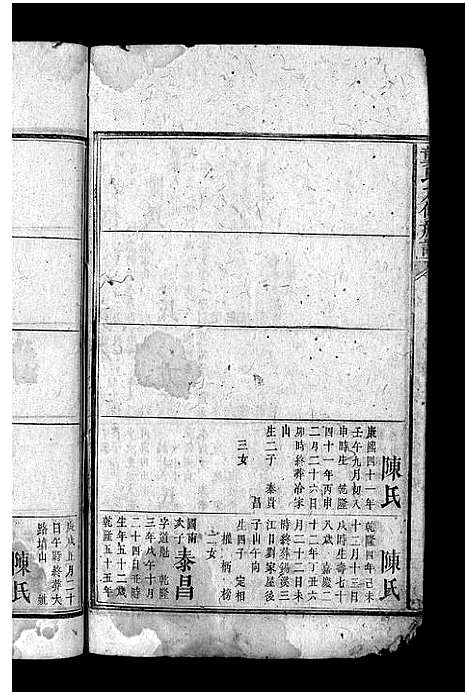 陳氏
康熙四十一年
壬午九月初八
申時生 乾隆
四十一年丙申
二月二十六日
卯時終葬冷家
山
生二子 泰員
昌
三女
陳氏
乾隆四年己未
十二月十三日
戌時生壽七十
八歲 嘉慶二
十二年丁丑六
月二十二日未
時終葬錫溪三
江口劉家屋後
子山午向
生四子 定相
權柄榜
二女
國南
次子 泰昌
字道魁 乾隆
三年戊午十月
二十四日亥時
生年五十二歲
乾隆五十五年
庚戌五月二十
日午時終葬大
路墳山
陳氏